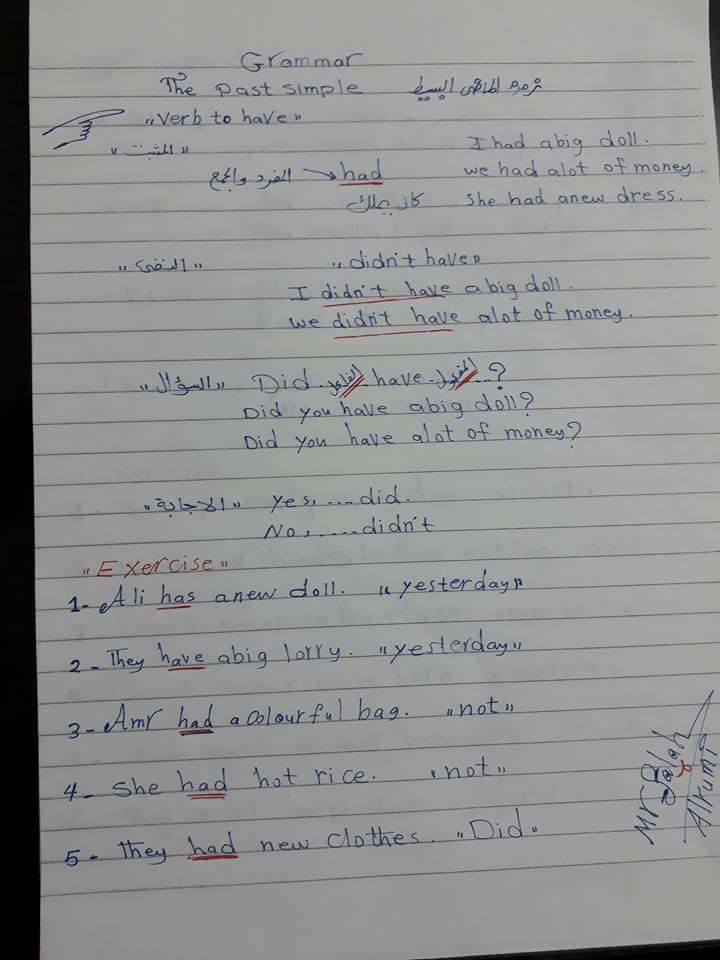 Grammar
The past simple زمن الماضى البسيط
"Verb to have"
"المثبت" I had abig doll.
المفرد والجمع → had we had alot of money.
كان يملك She had anew dress.
"النفى" "didn't have"
I didn't have abig doll.
we didn't have alot of money.
"السؤال" Did الفاعل have المفعول ...?
Did you have abig doll?
Did you have alot of money?
"الاجابة" yes, ... did.
No, .... didn't
"Exercise"
1- Ali has anew doll. "yesterday"
2- They have abig lorry. "yesterday"
3- Amr had a colourful bag. "not"
4- She had hot rice. "not"
5- They had new clothes. "Did"
Mr Salah
Alrumi